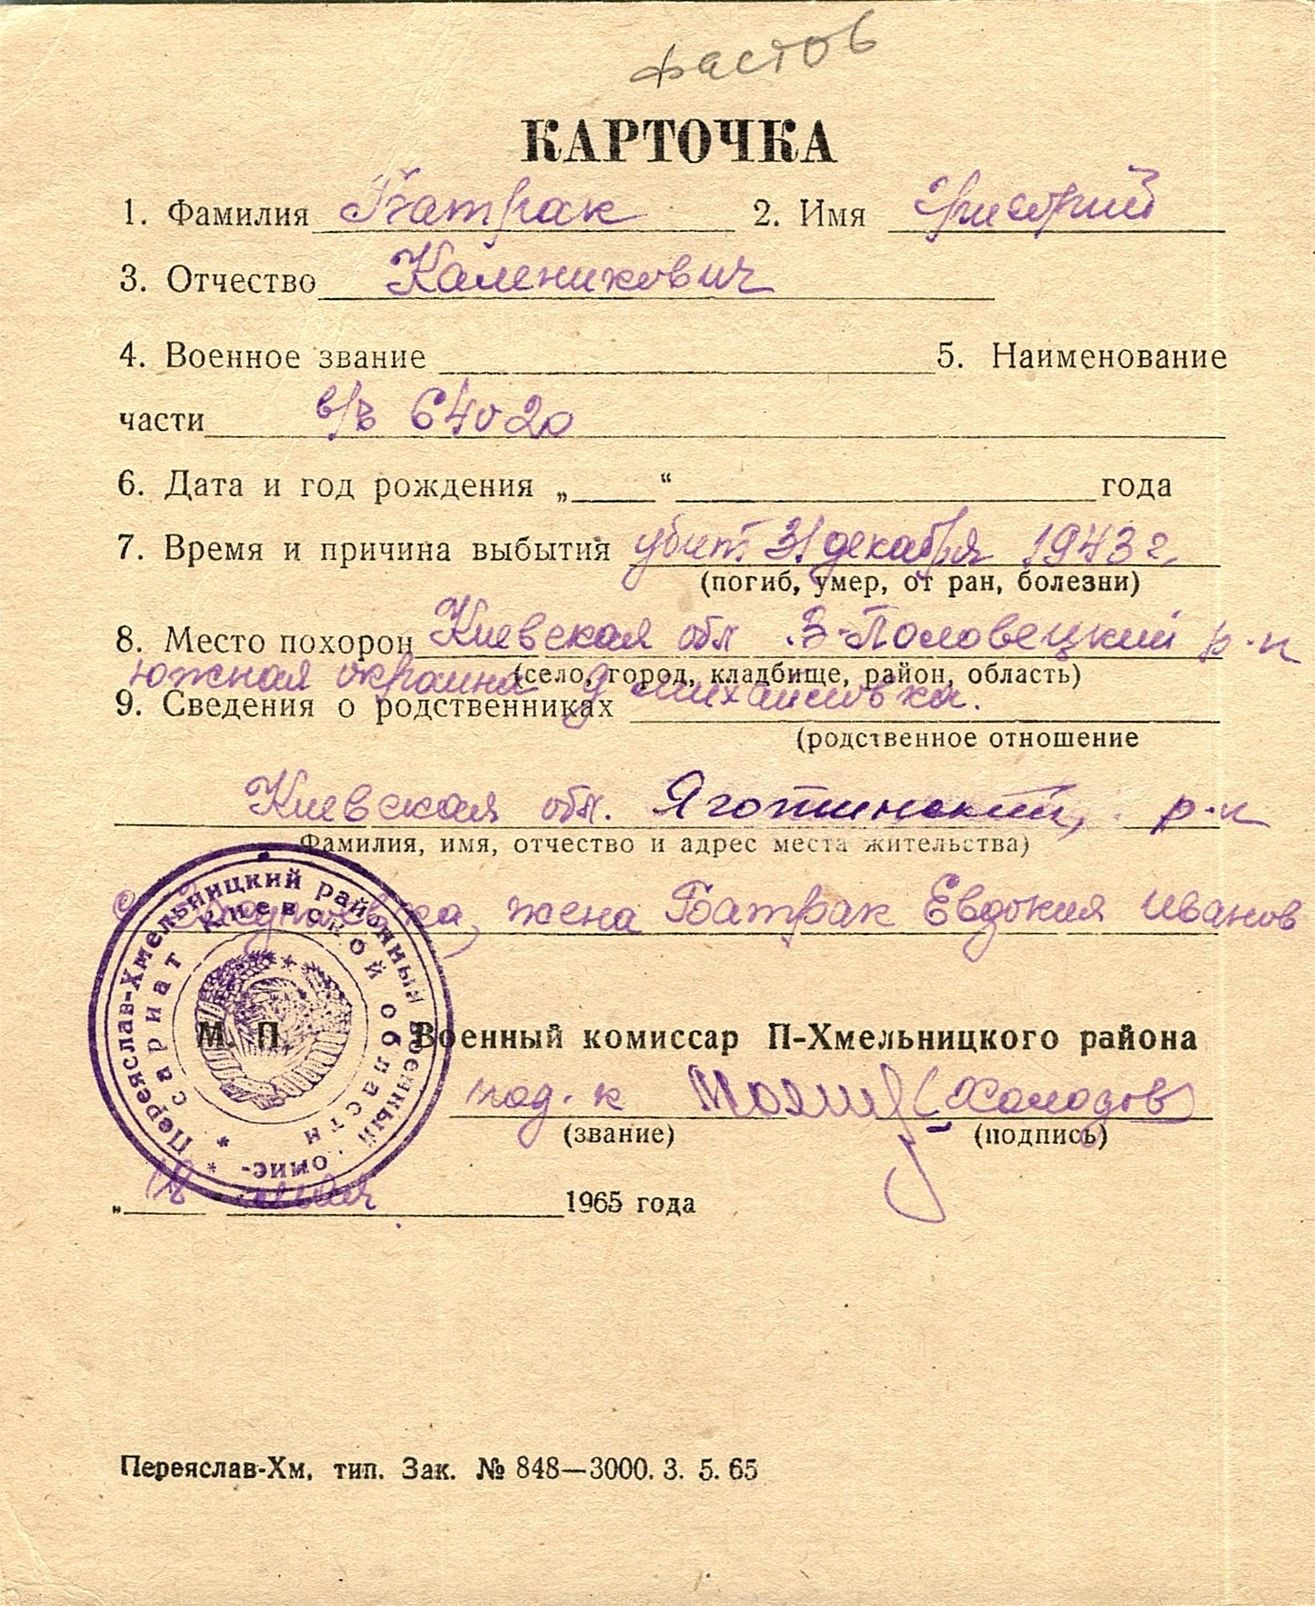 фастов
КАРТОЧКА
1. Фамилия Батрак 2. Имя
3. Отчество Каленикович
4. Военное звание 5. Наименование
части в/ч 64020
6. Дата и год рождения „ “ года
7. Время и причина выбытия убит 31 декабря 1943 г.
(погиб, умер, от ран, болезни)
8. Место похорон Киевская обл З-Половецкий р-н
(село, город, кладбище, район, область)
южная окраина д Михайловка.
9. Сведения о родственниках
(родственное отношение
Киевская обл. Яготинский, р-н
Фамилия, имя, отчество и адрес места жительства)
с. жена Батрак Евдокия Иванов
Переяслав-Хмельницкий районный Военный комис-
сариат Киевской области
М. П. Военный комиссар П-Хмельницкого района
под. к (Холодов)
(звание) (подпись)
„ 18 1965 года
Переяслав-Хм, тип. Зак. № 848—3000. 3. 5. 65